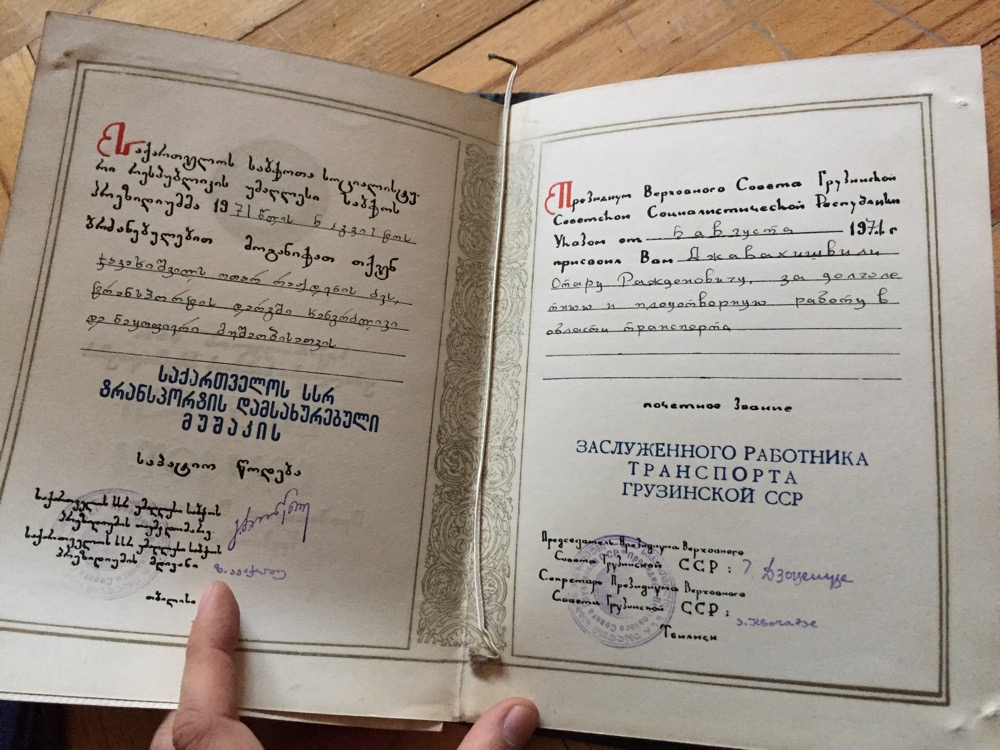 საქართველოს საბჭოთა სოციალისტუ-
რი რესპუბლიკის უმაღლესი საბჭოს
პრეზიდიუმმა 1971 წლის 6 აგვისტოს
ბრძანებულებით მოგანიჭათ თქვენ
ჯავახიშვილს ოთარ რაჟდენის ძეს,
ტრანსპორტის დარგში ხანგრძლივი
და ნაყოფიერი მუშაობისათვის
საქართველოს სსრ
ტრანსპორტის დამსახურებული
მუშაკის
საპატიო წოდება
საქართველოს სსრ უმაღლესი საბჭოს
პრეზიდიუმის თავმჯდომარე
საქართველოს სსრ უმაღლესი საბჭოს
პრეზიდიუმის მდივანი
თბილისი
Президиум Верховного Совета Грузинской
Советской Социалистической Республики
Указом от 6 августа 1971 г
присвоил Вам Джавахишвили
Отару Ражденовичу, за долголе
тнюю и плодотворную работу в
области транспорта
почетное звание
ЗАСЛУЖЕННОГО РАБОТНИКА
ТРАНСПОРТА
ГРУЗИНСКОЙ ССР
Председатель Президиума Верховного
Совета Грузинской ССР: Г. Дзоценидзе
Секретарь Президиума Верховного
Совета Грузинской ССР:
Тбилиси